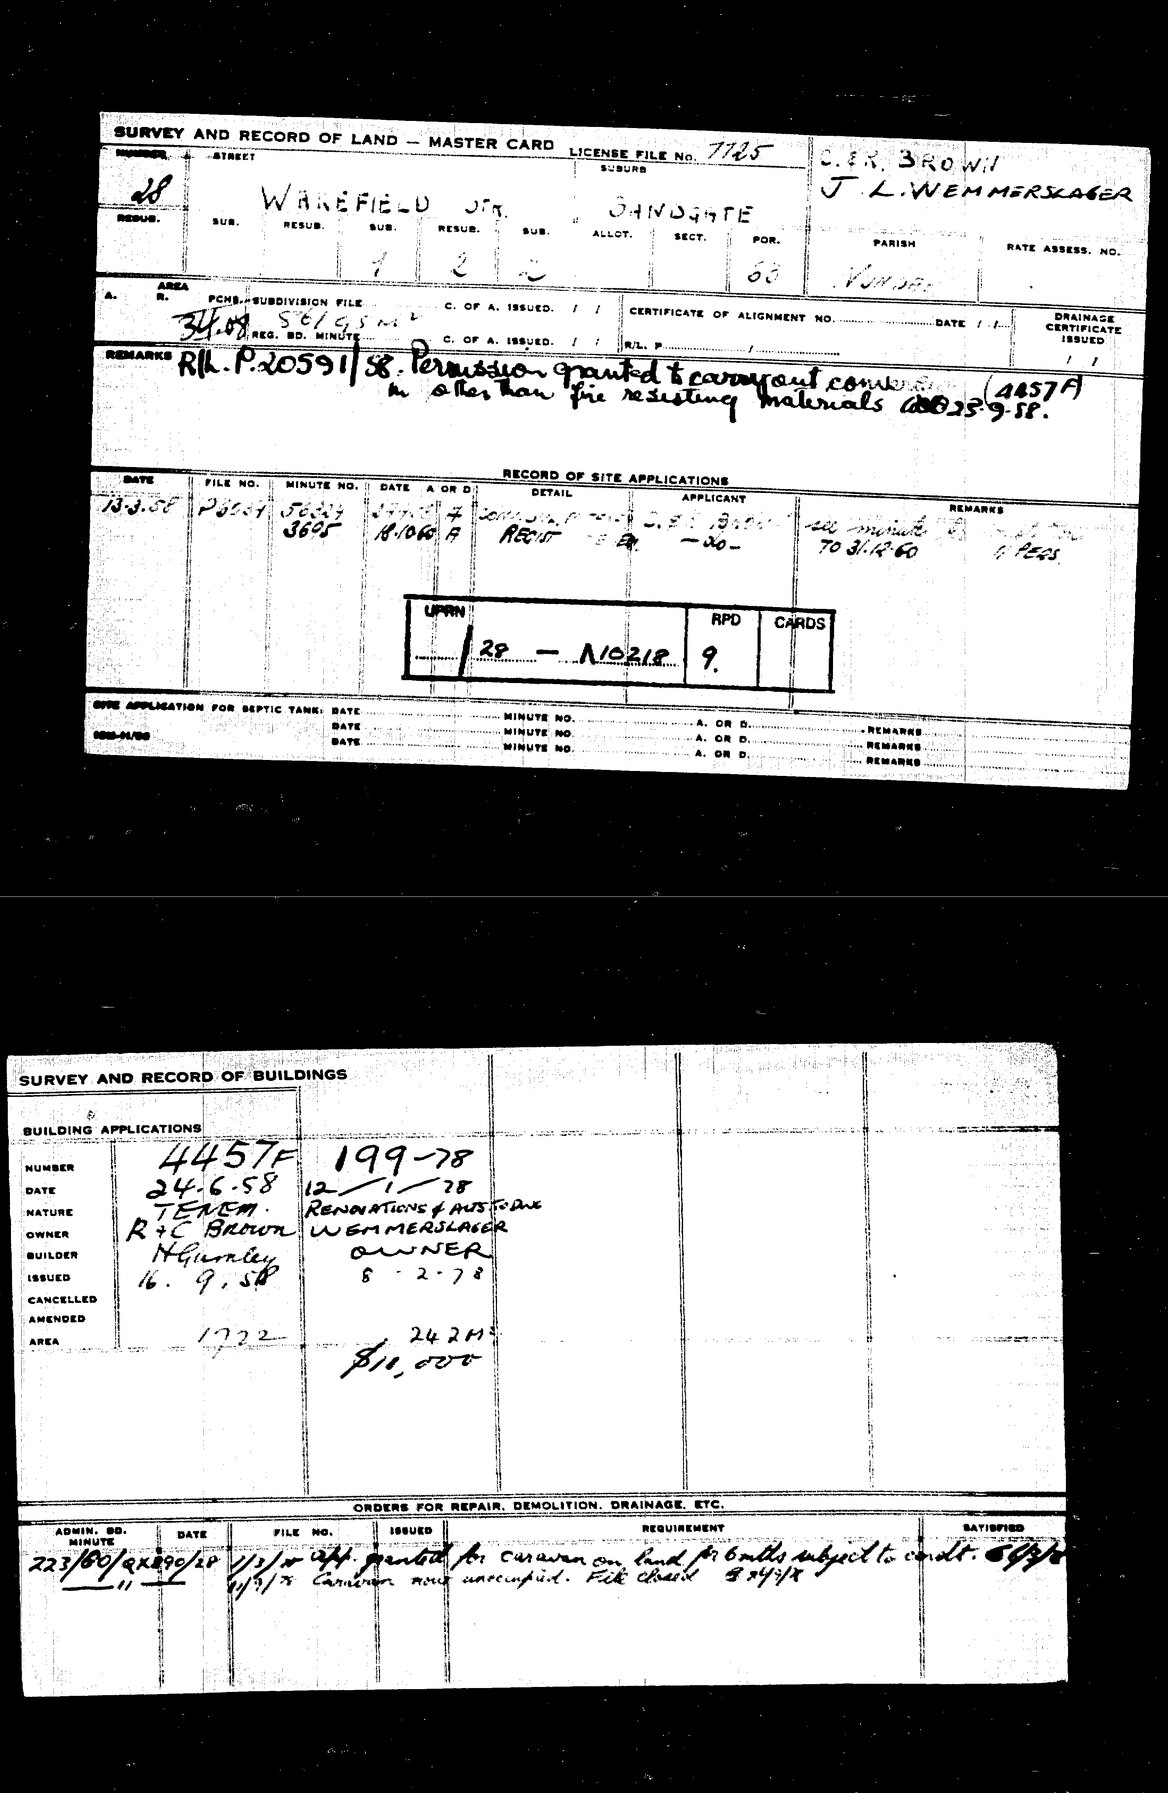 SURVEY AND RECORD OF LAND — MASTER CARD LICENSE FILE No. 7725
C. & R. BROWN
J L. WEMMERSLAGER
NUMBER STREET SUBURB
28 WAKEFIELD STR. SANDGATE
RESUB. SUB. RESUB. SUB. RESUB. SUB. ALLOT. SECT. POR. PARISH RATE ASSESS. NO.
1 2 2 68
AREA
A. R. PCHS. SUBDIVISION FILE C. OF A. ISSUED. / / CERTIFICATE OF ALIGNMENT NO. DATE / / DRAINAGE CERTIFICATE ISSUED
34.08 REG. BD. MINUTE C. OF A. ISSUED. / / R/L. P. / / /
REMARKS R/L. P. 20591/58. Permission granted to carry out (4457F)
in other than fire resisting materials 23-9-58.
RECORD OF SITE APPLICATIONS
DATE FILE NO. MINUTE NO. DATE A OR D DETAIL APPLICANT REMARKS
13.3.58 A C. & R. Brown see minute
3695 18.10.60 A REGIST — do — TO 31.12.60 PERS.
UPRN RPD CARDS
/ 28 — N10218 9.
SITE APPLICATION FOR SEPTIC TANK: DATE MINUTE NO. A. OR D. REMARKS
DATE MINUTE NO. A. OR D. REMARKS
DATE MINUTE NO. A. OR D. REMARKS
SURVEY AND RECORD OF BUILDINGS
BUILDING APPLICATIONS
NUMBER 4457F 199-78
DATE 24.6.58 12/1/78
NATURE TENEM. RENOVATIONS & ALTS TO DWG
OWNER R & C Brown WEMMERSLAGER
BUILDER H Gurnley OWNER
ISSUED 16. 9. 58 8 - 2 - 78
CANCELLED
AMENDED
AREA 1722 242 M²
$10,000
ORDERS FOR REPAIR, DEMOLITION, DRAINAGE, ETC.
ADMIN. BD. MINUTE DATE FILE NO. ISSUED REQUIREMENT SATISFIED
app. granted for caravan on land for 6 mths subject to condt.
Caravan now unoccupied. File closed